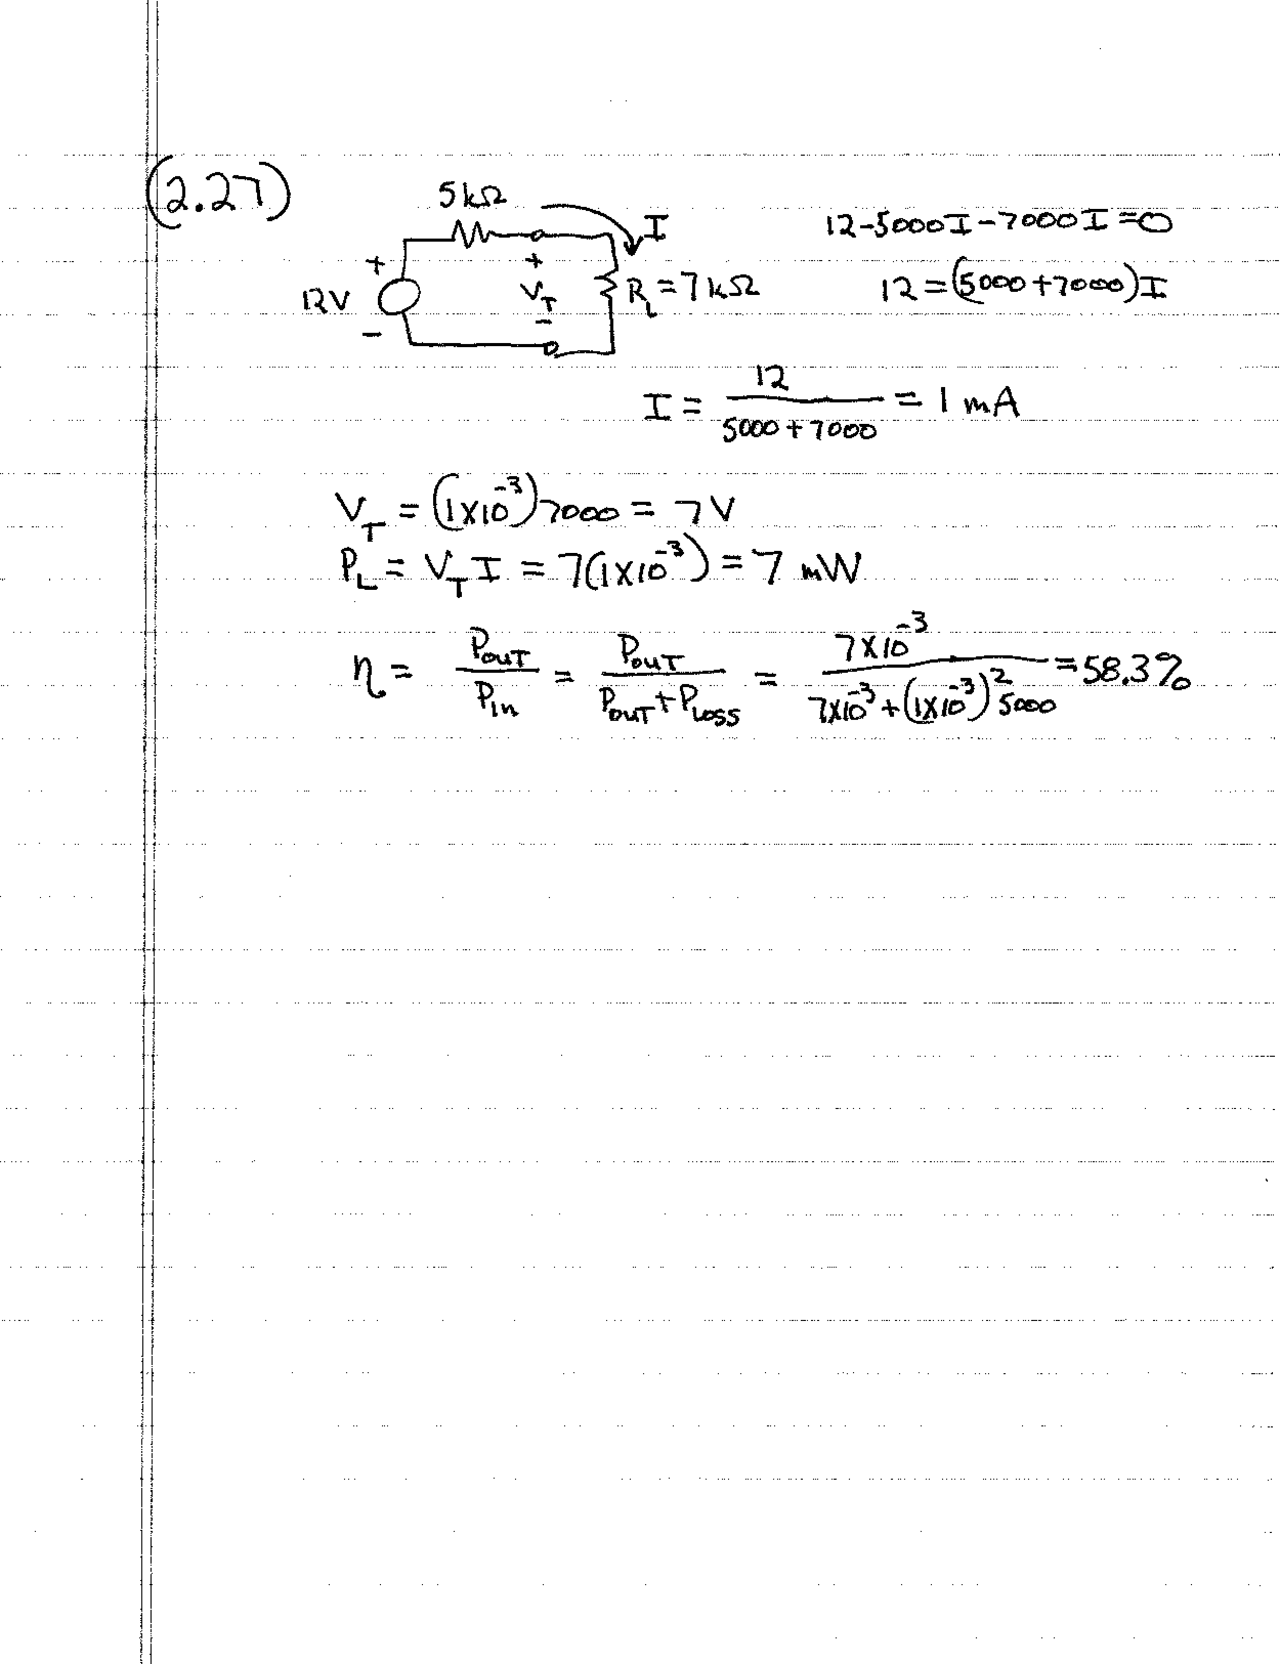 (2.27)
5kΩ
I
12-5000I-7000I=0
+
+
12V
V_T
R_L=7kΩ
12=(5000+7000)I
-
-
I = 12/(5000+7000) = 1 mA
V_T = (1X10^-3)7000 = 7V
P_L = V_T I = 7(1X10^-3) = 7 mW
η = P_OUT/P_In = P_OUT/(P_OUT+P_LOSS) = 7X10^-3/(7X10^-3+(1X10^-3)^2 5000) = 58.3%